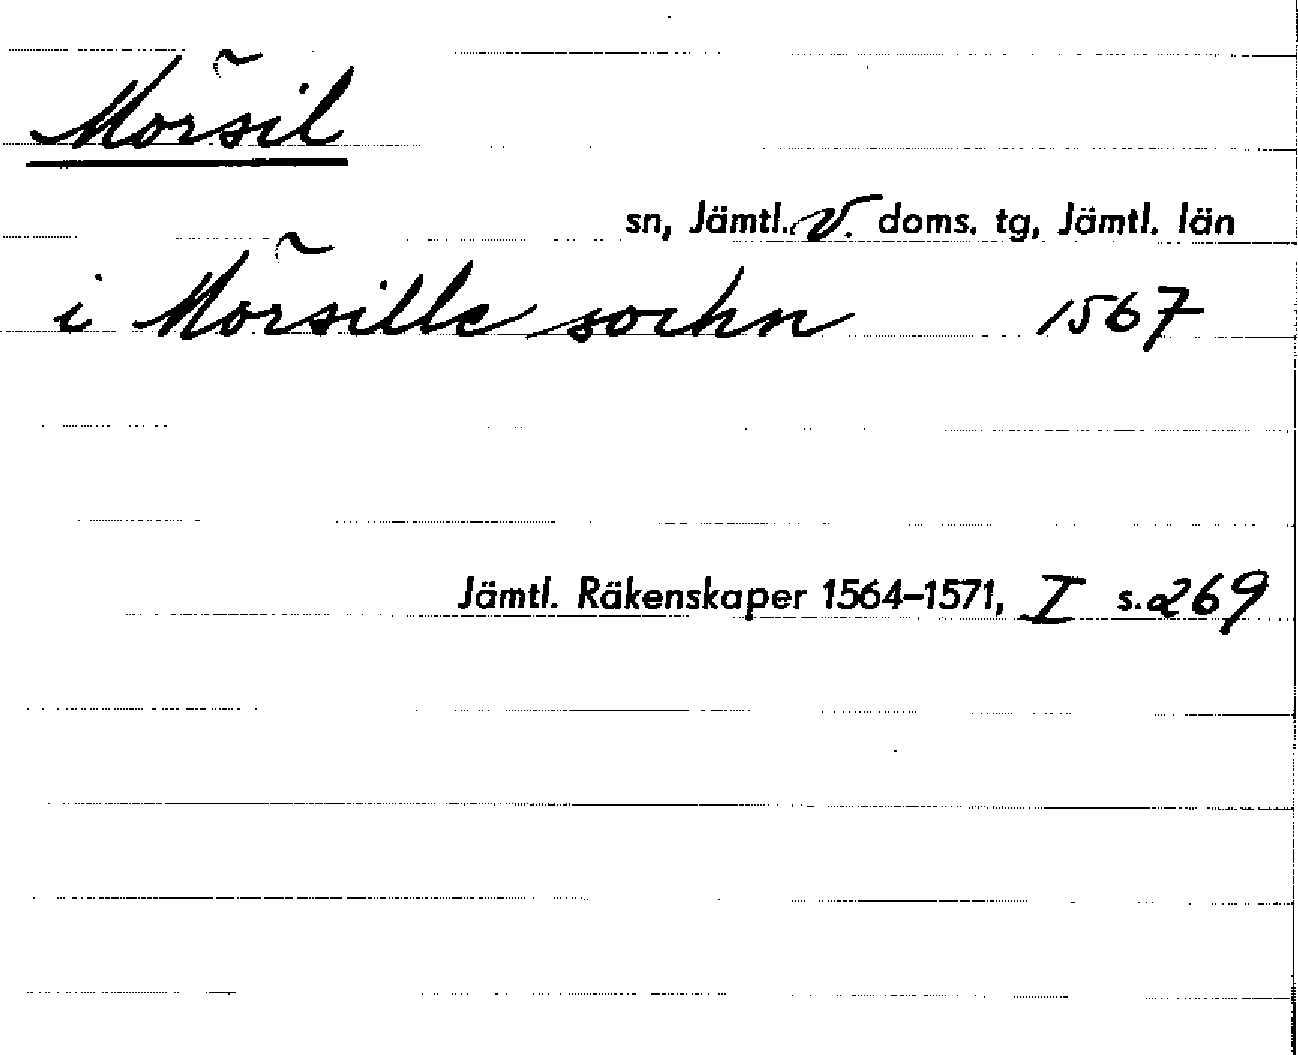 Mörsil
sn, Jämtl. V. doms. tg, Jämtl. län
i Mörsille sochn 1567
Jämtl. Räkenskaper 1564–1571, I s. 269